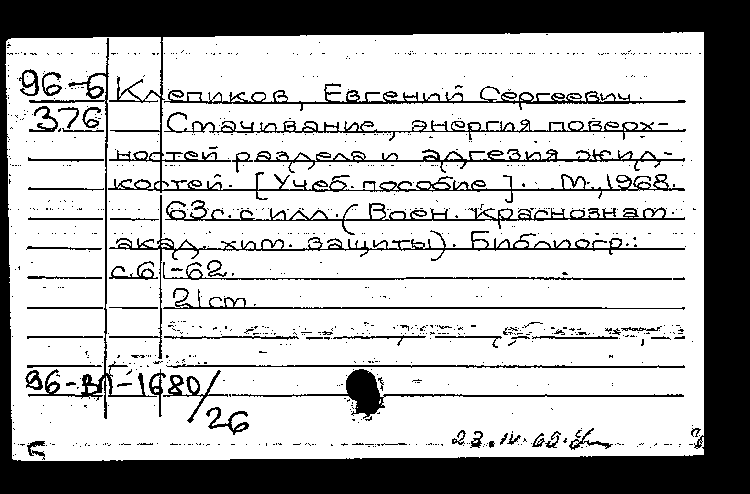 96-6 Клепиков, Евгений Сергеевич.
376 Смачивание, энергия поверх-
ностей раздела и адгезия жид-
костей. [Учеб. пособие]. М., 1968.
63с. с илл. (Воен. краснознам.
акад. хим. защиты). Библиогр.:
с. 61-62.
21 cm.
96-ВЛ-1680/26